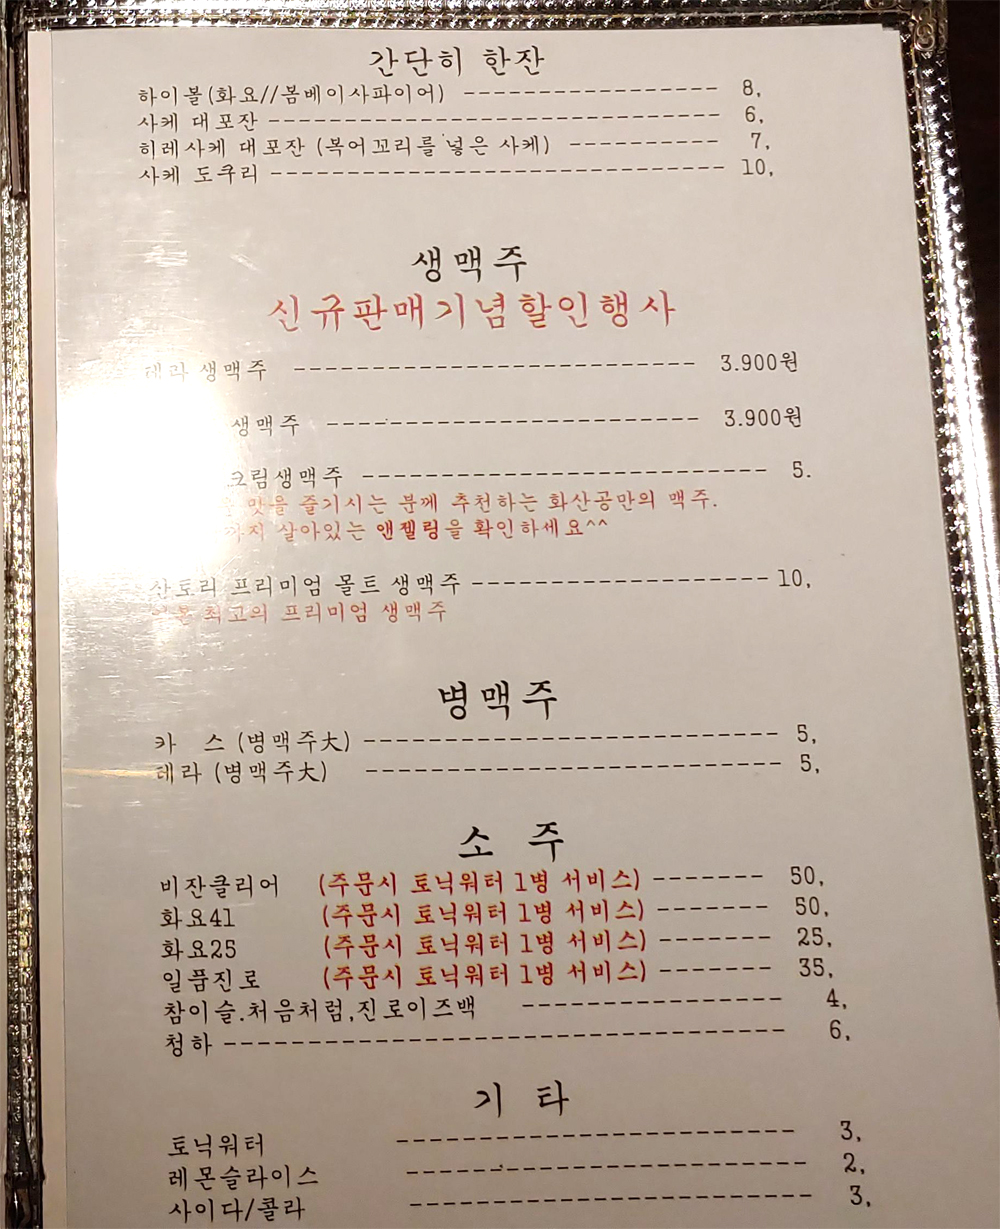 간단히 한잔
하이볼(화요//봄베이사파이어) ----------------- 8,
사케 대포잔 ------------------------------ 6,
히레사케 대포잔 (복어꼬리를 넣은 사케) ---------- 7,
사케 도쿠리 ------------------------------ 10,
생맥주
신규판매기념할인행사
테라 생맥주 -------------------------- 3.900원
생맥주 ------------------------ 3.900원
크림생맥주 -------------------------- 5.
맛을 즐기시는 분께 추천하는 화산공만의 맥주.
까지 살아있는 앤젤링을 확인하세요^^
산토리 프리미엄 몰트 생맥주 ------------------- 10,
일본 최고의 프리미엄 생맥주
병맥주
카 스 (병맥주大) --------------------------- 5,
테라 (병맥주大) --------------------------- 5,
소 주
비잔클리어 (주문시 토닉워터 1병 서비스) ------- 50,
화요41 (주문시 토닉워터 1병 서비스) ------- 50,
화요25 (주문시 토닉워터 1병 서비스) ------- 25,
일품진로 (주문시 토닉워터 1병 서비스) ------- 35,
참이슬.처음처럼,진로이즈백 ----------------- 4,
청하 ------------------------------------ 6,
기 타
토닉워터 ------------------------- 3,
레몬슬라이스 ------------------------- 2,
사이다/콜라 ------------------------- 3,